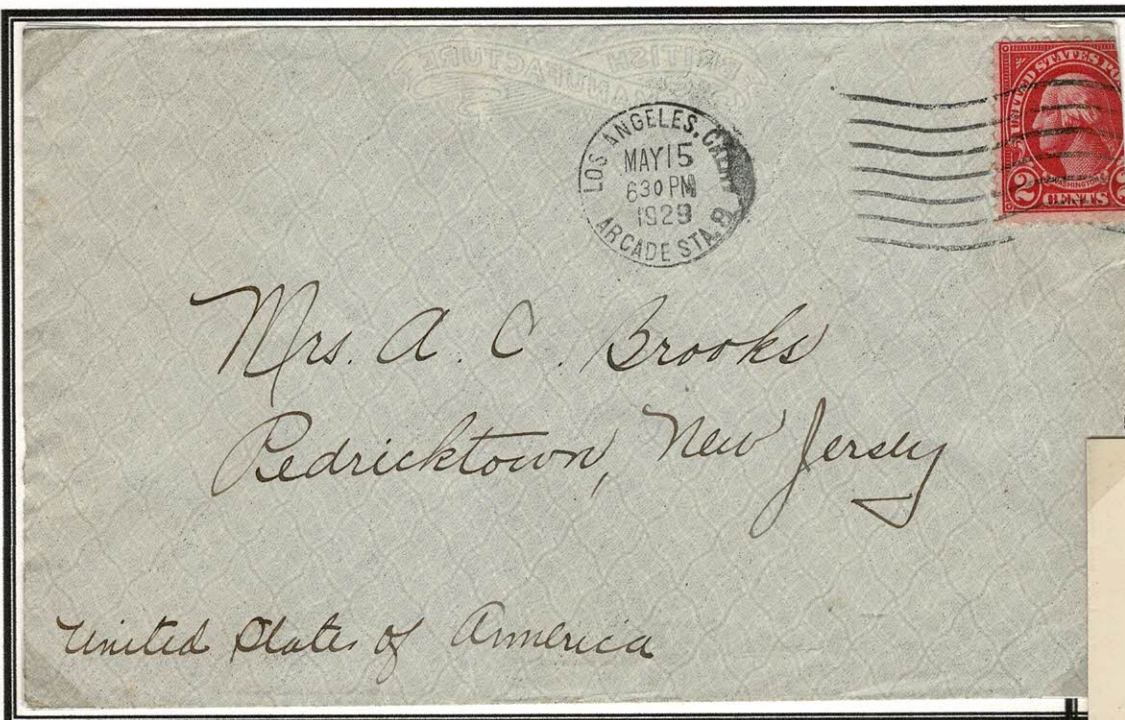 BRITISH
MANUFACTURE
LOS ANGELES, CALIF.
MAY 15
6 30 PM
1929
ARCADE STA. 8
UNITED STATES PO
WASHINGTON
2 CENTS 2
Mrs. A. C. Brooks
Pedricktown, New Jersey
United States of America